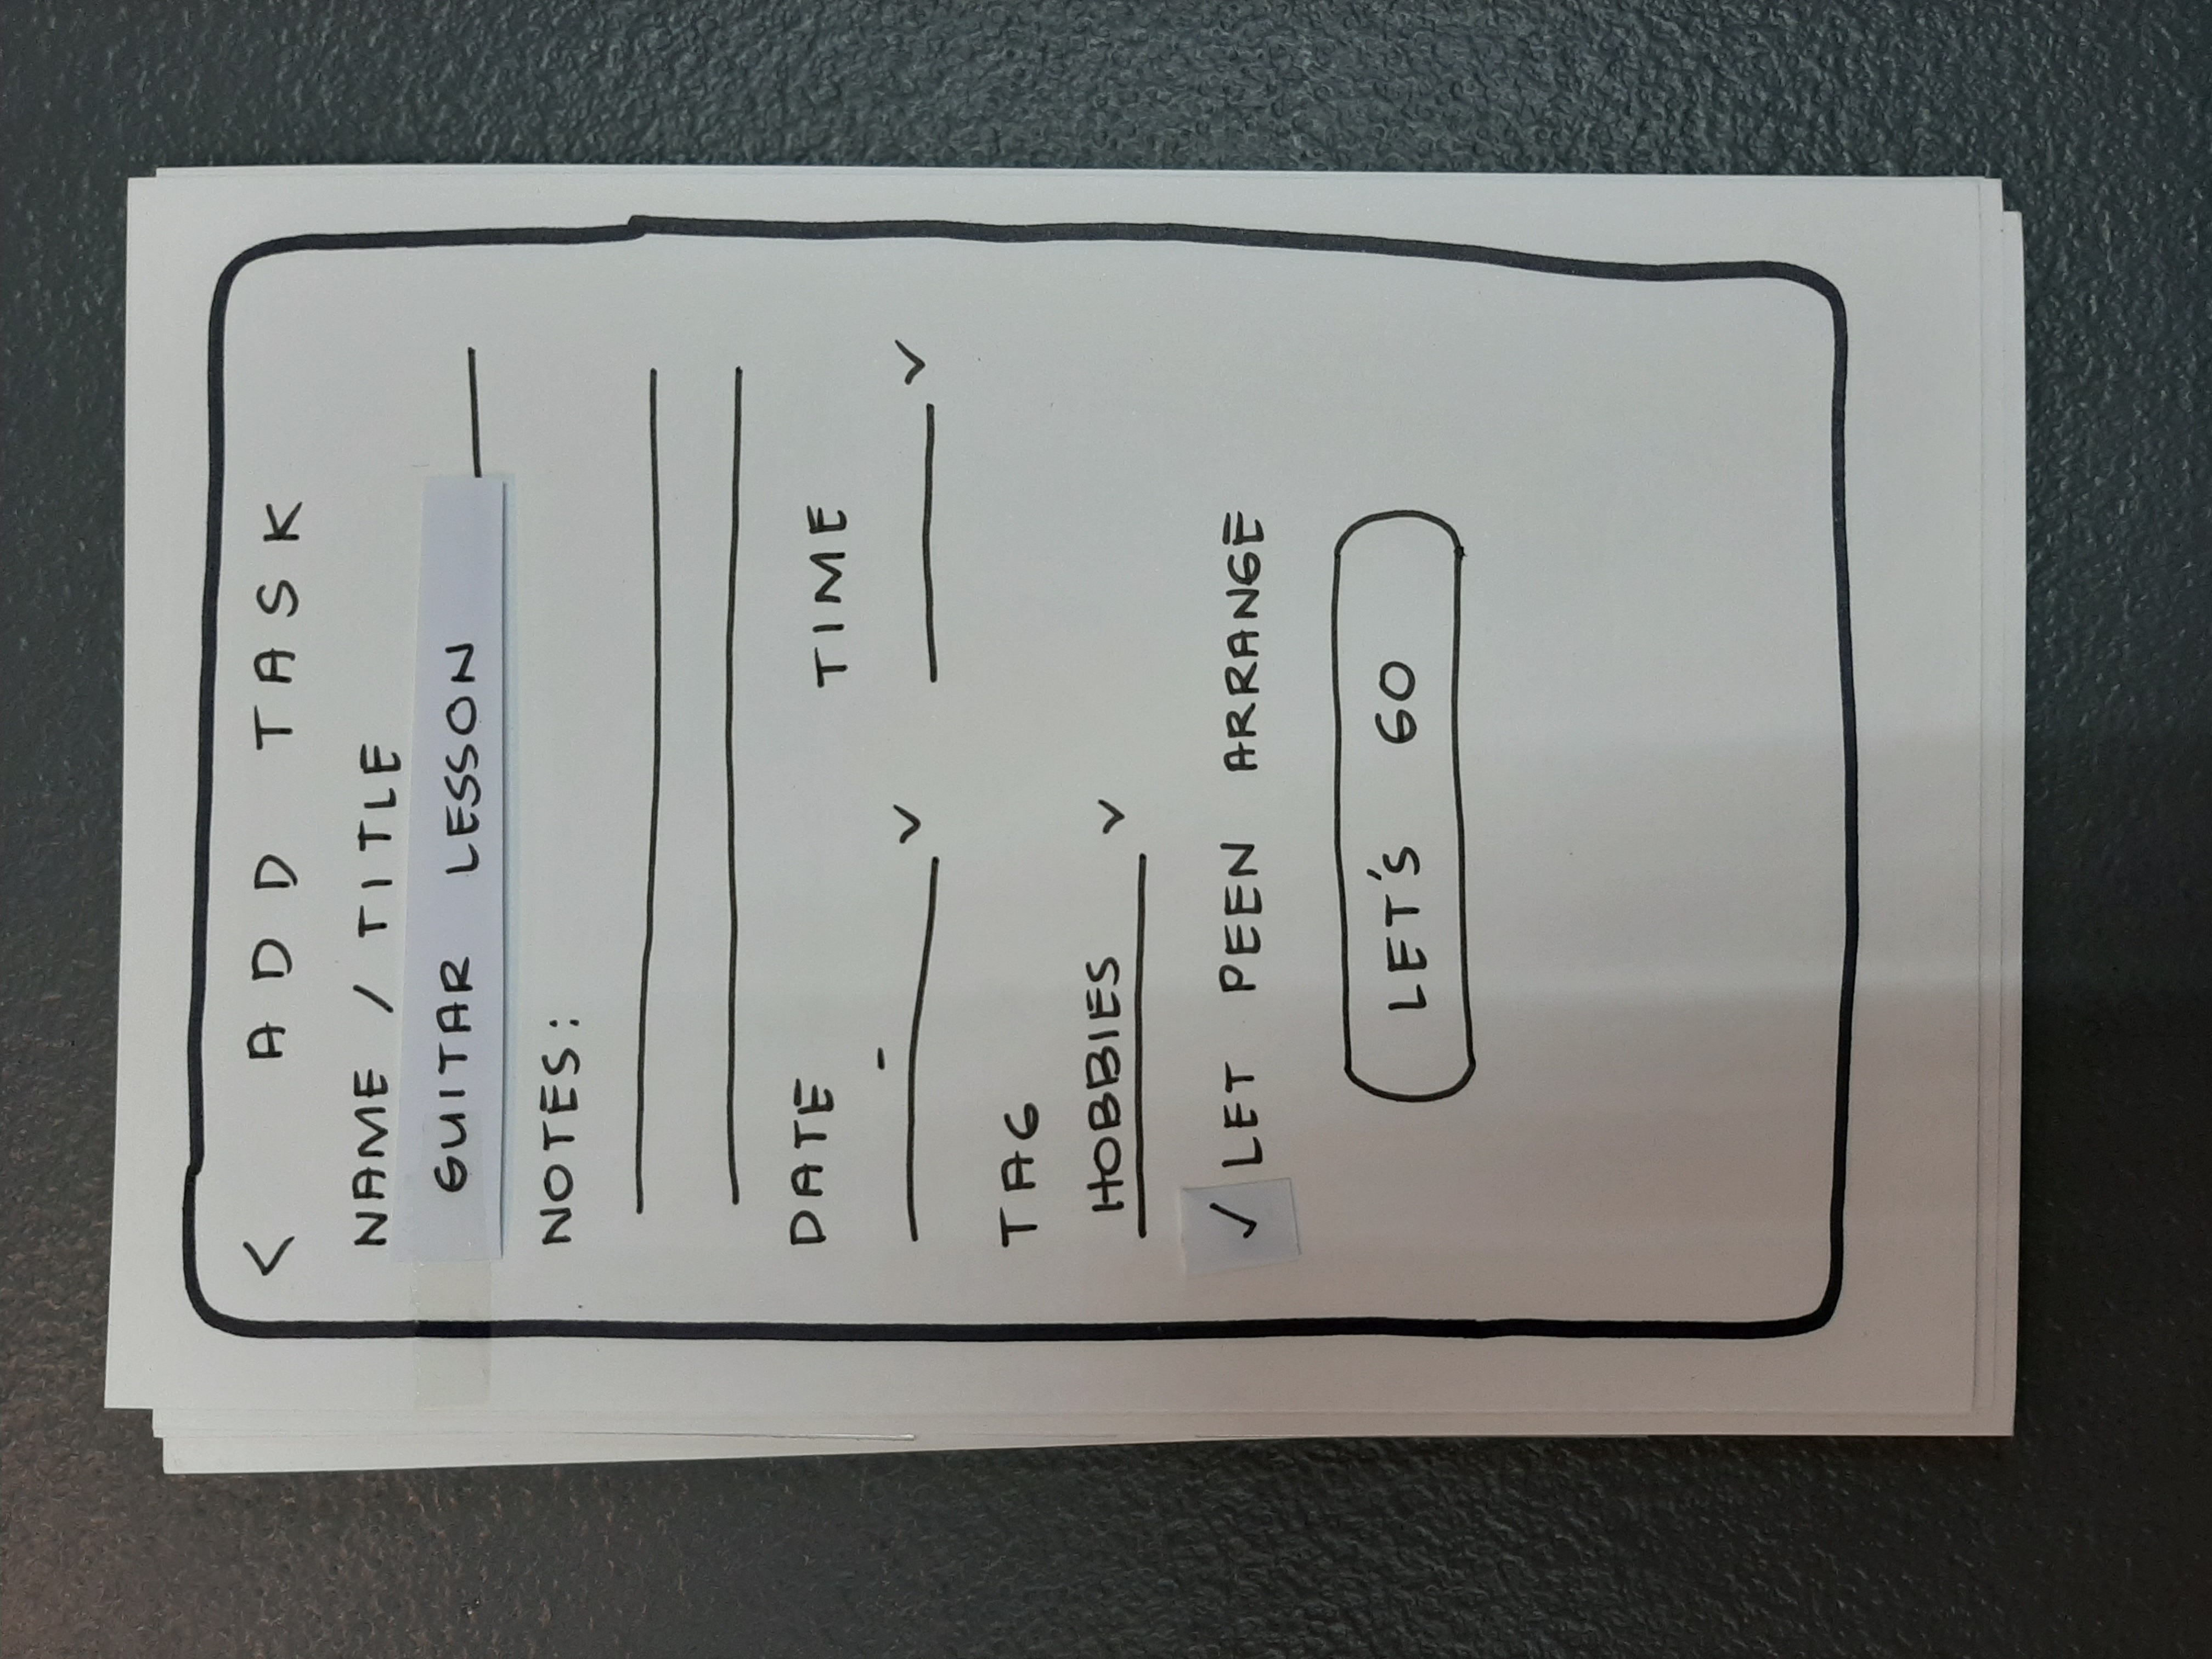 < ADD TASK
NAME / TITLE
GUITAR LESSON
NOTES:
DATE TIME
-
TAG
HOBBIES
✓ LET PEEN ARRANGE
LET'S GO